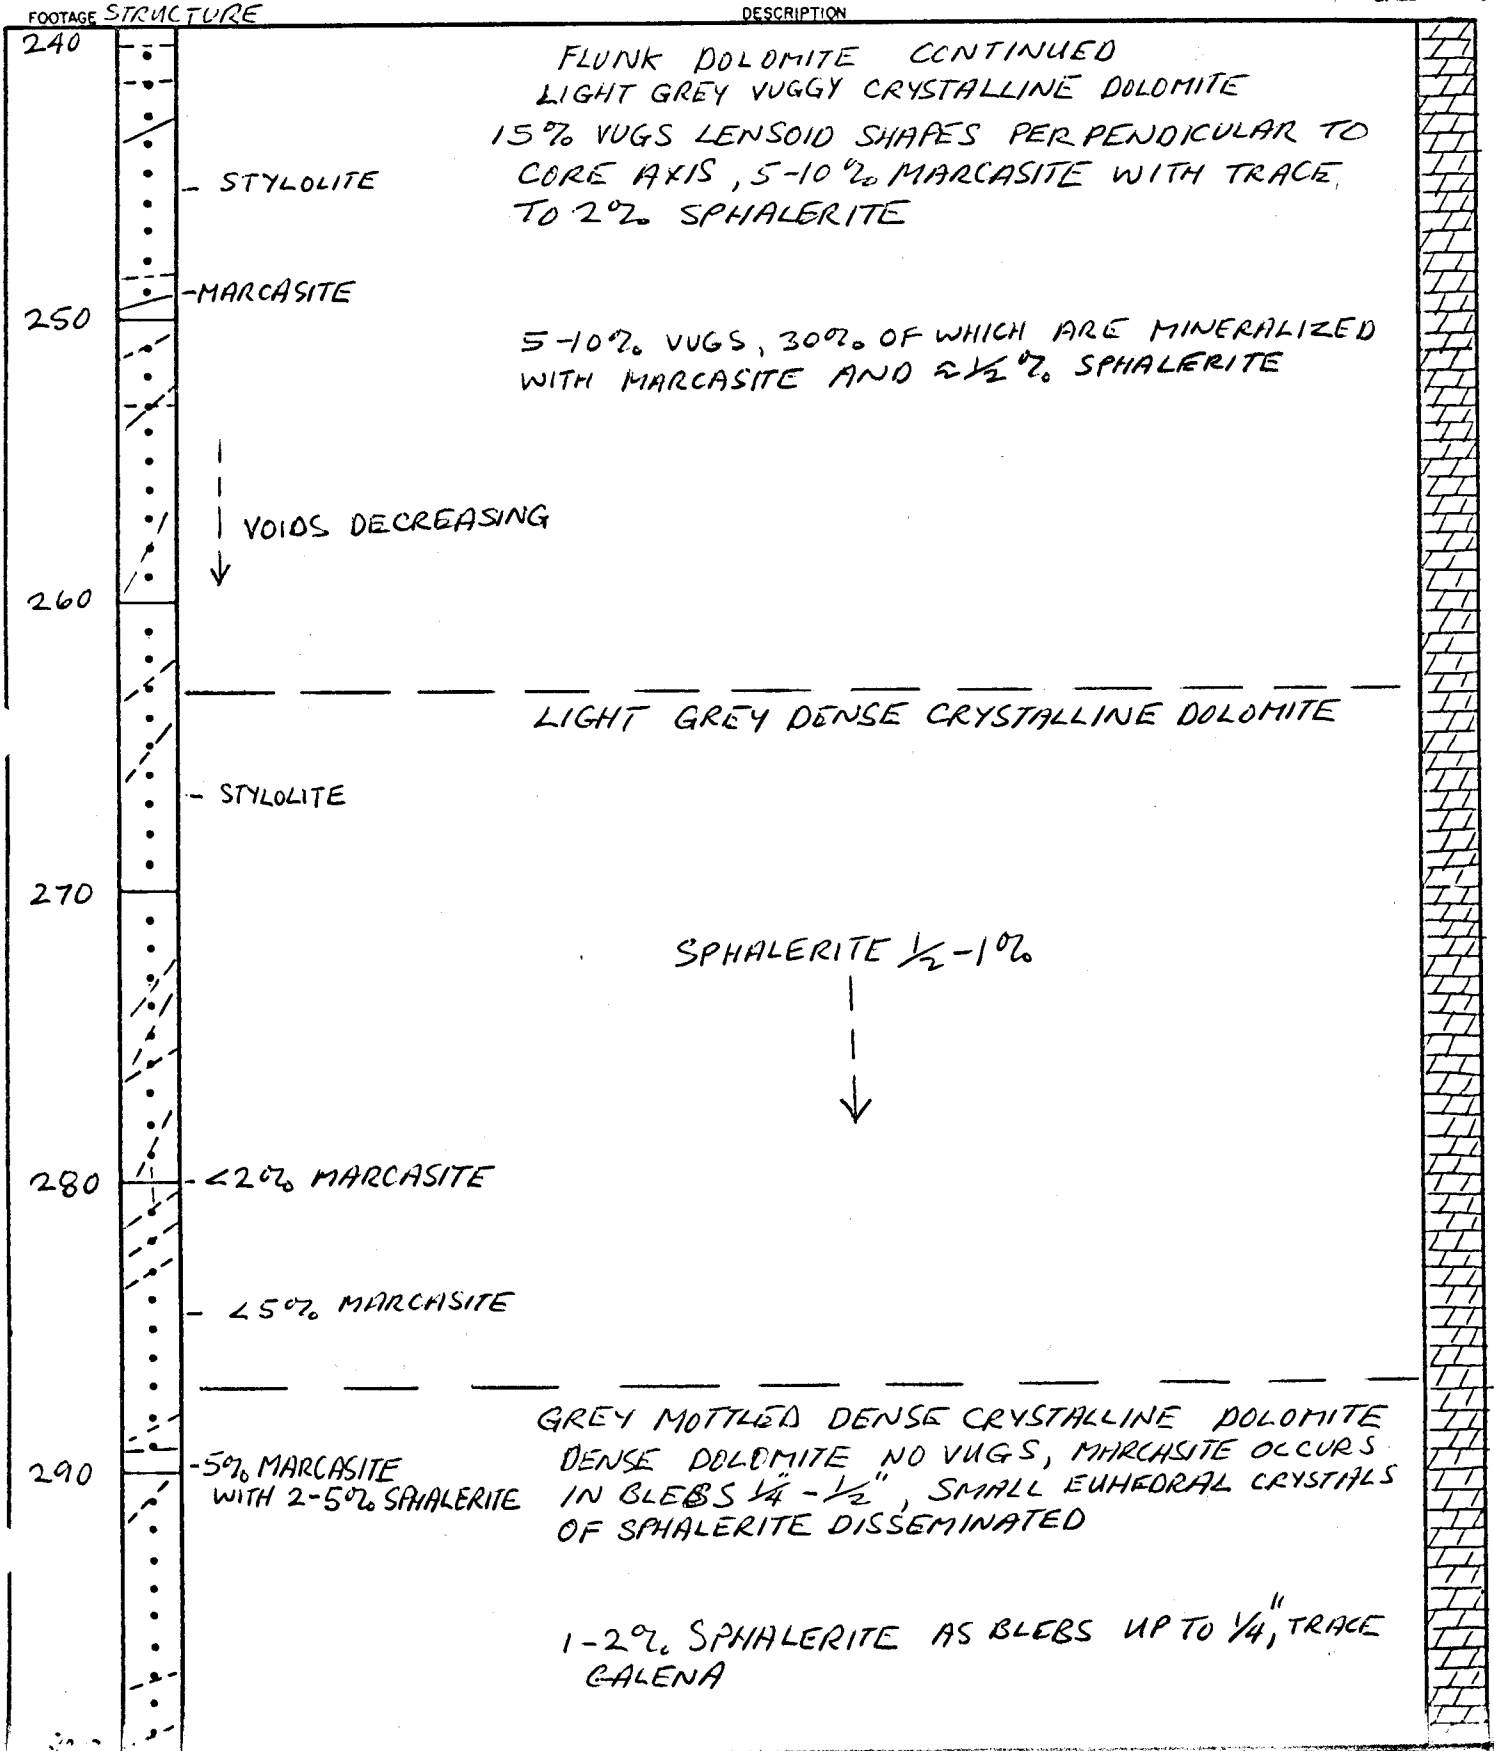 FOOTAGE STRUCTURE DESCRIPTION
240
FLUNK DOLOMITE CONTINUED
LIGHT GREY VUGGY CRYSTALLINE DOLOMITE
15% VUGS LENSOID SHAPES PERPENDICULAR TO
- STYLOLITE
CORE AXIS, 5-10% MARCASITE WITH TRACE
TO 2% SPHALERITE
-MARCASITE
250
5-10% VUGS, 30% OF WHICH ARE MINERALIZED
WITH MARCASITE AND ≈ 1/2 % SPHALERITE
VOIDS DECREASING
260
LIGHT GREY DENSE CRYSTALLINE DOLOMITE
- STYLOLITE
270
SPHALERITE 1/2 -1%
280
- <2% MARCASITE
- <5% MARCASITE
GREY MOTTLED DENSE CRYSTALLINE DOLOMITE
290
-5% MARCASITE
WITH 2-5% SPHALERITE
DENSE DOLOMITE NO VUGS, MARCASITE OCCURS
IN BLEBS 1/4" - 1/2", SMALL EUHEDRAL CRYSTALS
OF SPHALERITE DISSEMINATED
1-2% SPHALERITE AS BLEBS UP TO 1/4", TRACE
GALENA